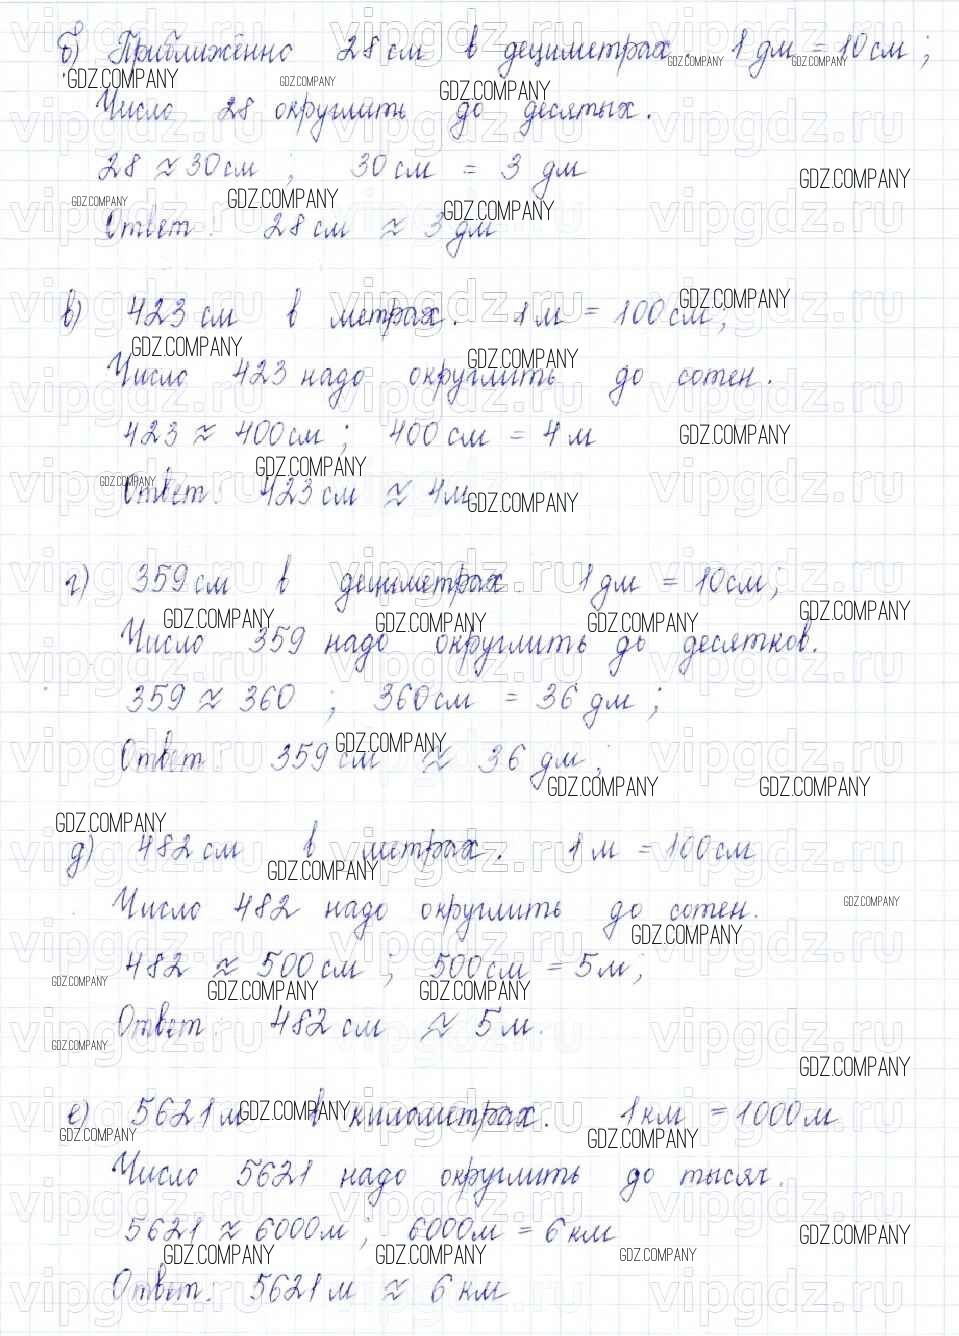 б) Приближённо 28 см в дециметрах. 1 дм = 10 см;
Число 28 округлить до десятых.
28 ≈ 30 см; 30 см = 3 дм
Ответ: 28 см ≈ 3 дм
в) 423 см в метрах. 1 м = 100 см;
Число 423 надо округлить до сотен.
423 ≈ 400 см; 400 см = 4 м
Ответ: 423 см ≈ 4 м
г) 359 см в дециметрах. 1 дм = 10 см;
Число 359 надо округлить до десятков.
359 ≈ 360; 360 см = 36 дм;
Ответ: 359 см ≈ 36 дм;
д) 482 см в метрах. 1 м = 100 см
Число 482 надо округлить до сотен.
482 ≈ 500 см; 500 см = 5 м;
Ответ: 482 см ≈ 5 м.
е) 5621 м в километрах. 1 км = 1000 м
Число 5621 надо округлить до тысяч.
5621 ≈ 6000 м; 6000 м = 6 км
Ответ: 5621 м ≈ 6 км
GDZ.COMPANY
vipgdz.ru